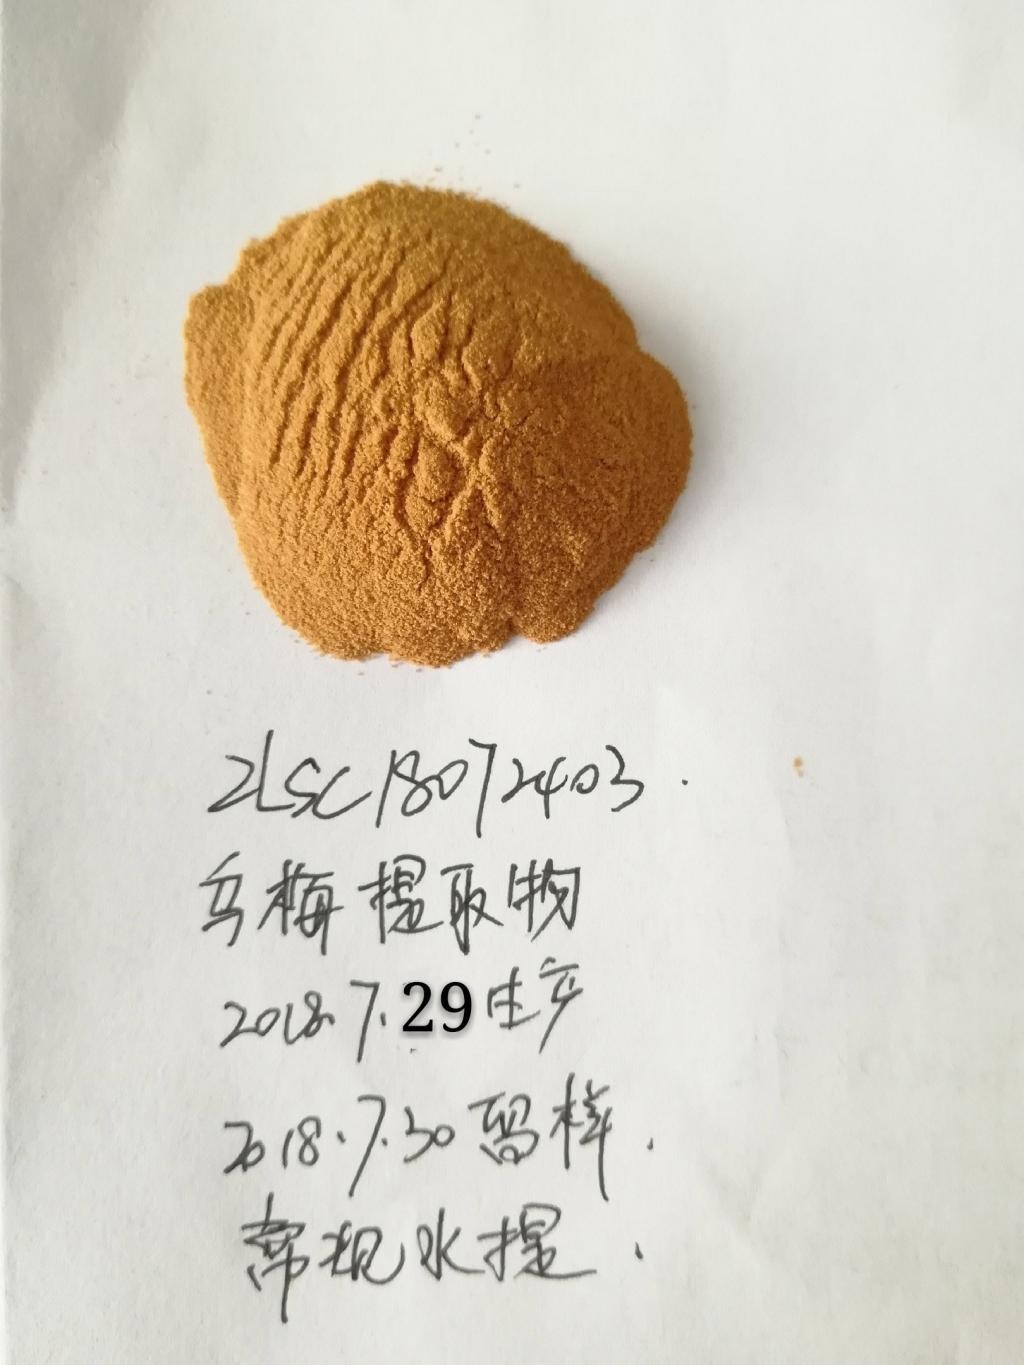 ZLSC18072403.
乌梅提取物
2018.7.29生产
2018.7.30留样.
常规水提.